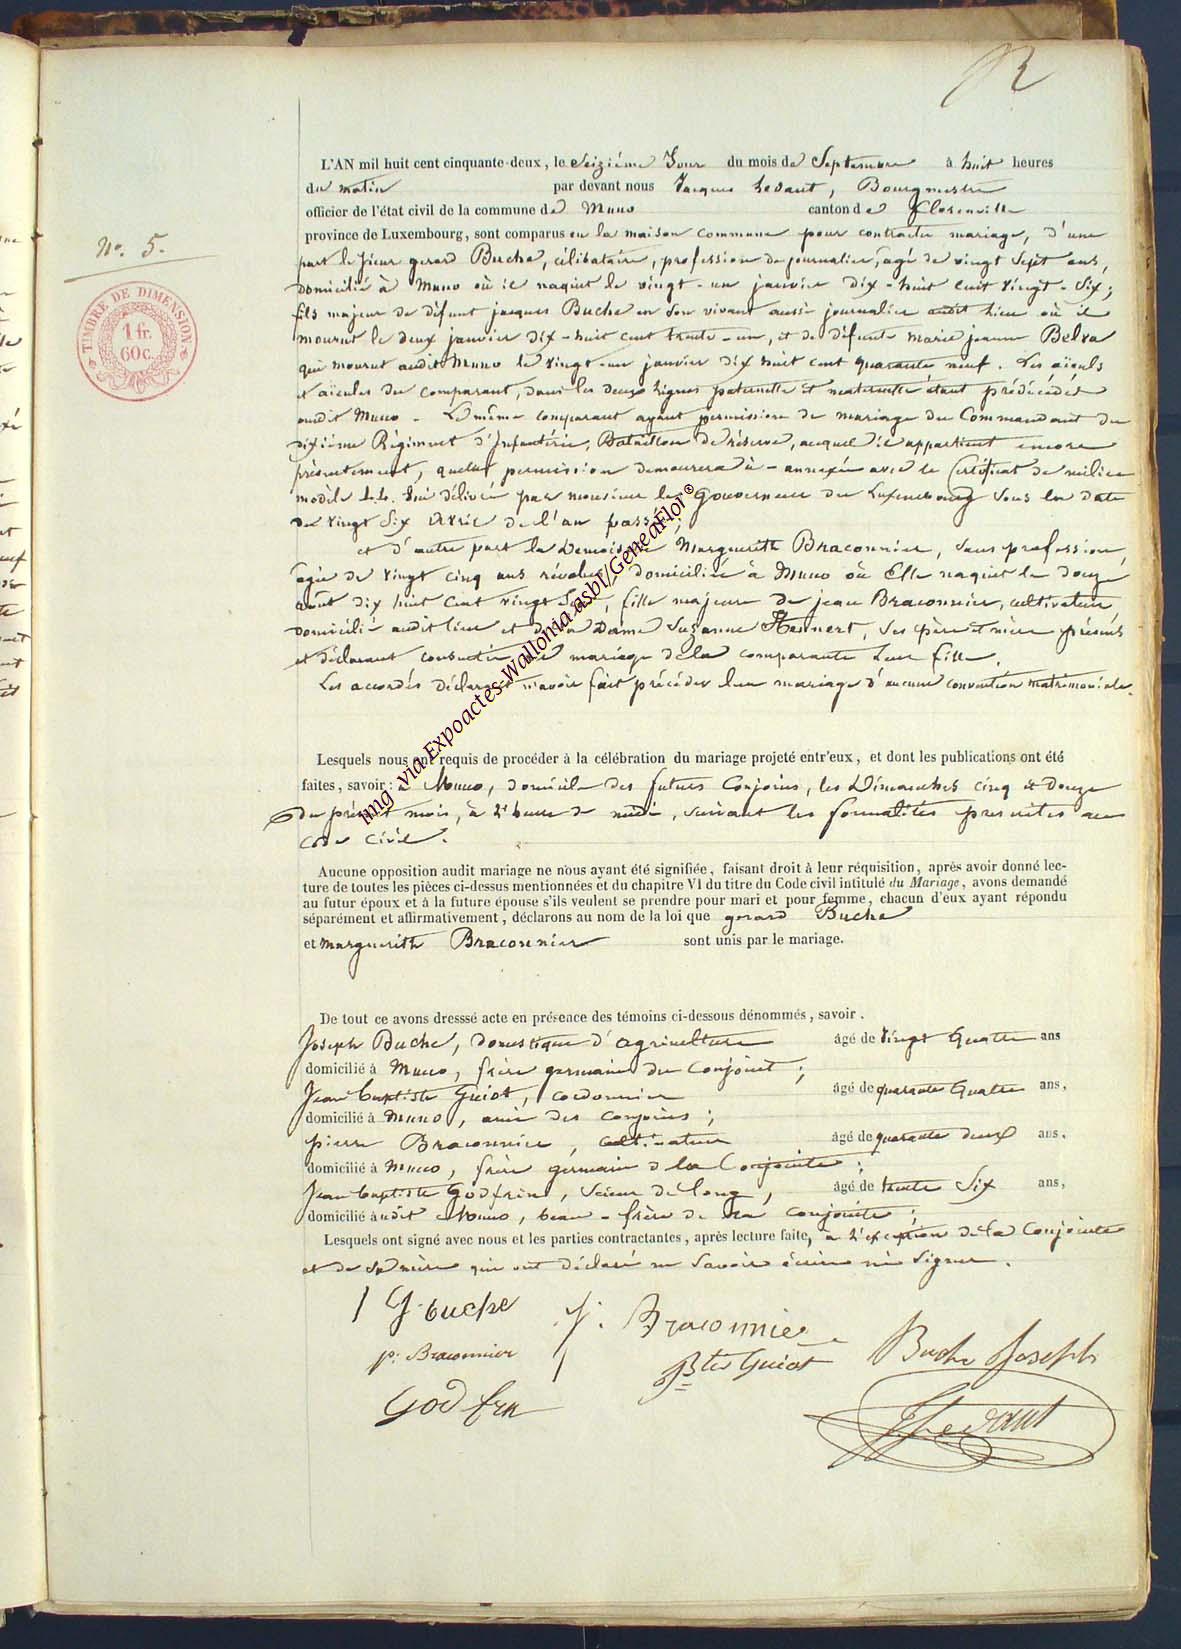 L'AN mil huit cent cinquante-deux, le Seizième Jour du mois de Septembre à huit heures
du matin par devant nous Jacques hevant, Bourgmestre
officier de l'état civil de la commune de Muno canton de Florenville
N.° 5.
province de Luxembourg, sont comparus en la maison Commune pour contracter mariage, d'une
part le sieur gerard Buche, célibataire, profession de journalier, agé de vingt Sept ans,
domicilié à Muno où il naquit le vingt-un janvier dix-huit cent vingt-Six;
TIMBRE DE DIMENSION
1 fr.
60 c.
fils majeur de défunt jacques Buche en son vivant aussi journalier audit lieu où il
mourut le deux janvier dix-huit cent trente-un, et de défunte marie jeanne Belva
qui mourut audit Muno le vingt-un janvier dix huit cent quarante neuf. Les aïeuls
et aïeules du comparant, dans les deux lignes paternelle et maternelle étant prédécédés
audit Muno. Le même comparant ayant permission de mariage du Commandant du
dixième Régiment d'Infanterie, Bataillon de réserve, auquel il appartient encore
présentement, quelle permission demeurera ci-annexée avec le Certificat de milice
modèle délivré par monsieur le Gouverneur du Luxembourg sous la date
du vingt Six Avril de l'an passé;
et d'autre part la Demoiselle Marguerith Braconnier, sans profession,
agée de vingt cinq ans révolus, domiciliée à Muno où Elle naquit le douze
août dix huit Cent vingt Sept, fille majeure de jean Braconnier, cultivateur,
domicilié audit lieu et de la Dame Suzanne Hennert, ses père et mère présents
et déclarant consentir au mariage de la comparante leur fille.
Les accordés déclarent n'avoir fait précéder leur mariage d'aucune convention matrimoniale.
Lesquels nous ont requis de procéder à la célébration du mariage projeté entr'eux, et dont les publications ont été
faites, savoir: à Muno, domicile des futurs Conjoins, les Dimanches cinq et Douze
du présent mois, à l'heure de midi, suivant les formalités prescrites au
Code Civil.
Aucune opposition audit mariage ne nous ayant été signifiée, faisant droit à leur réquisition, après avoir donné lec-
ture de toutes les pièces ci-dessus mentionnées et du chapitre VI du titre du Code civil intitulé du Mariage, avons demandé
au futur époux et à la future épouse s'ils veulent se prendre pour mari et pour femme, chacun d'eux ayant répondu
séparément et affirmativement, déclarons au nom de la loi que gerard Buche
et marguerith Braconnier sont unis par le mariage.
De tout ce avons dresssé acte en présence des témoins ci-dessous dénommés, savoir.
Joseph Buche, domestique d'agriculture âgé de vingt Quatre ans
domicilié à Muno, frère germain du Conjoint;
Jean baptiste Guiot, cordonnier âgé de quarante Quatre ans,
domicilié à Muno, ami des conjoins;
pierre Braconnier, cultivateur âgé de quarante deux ans.
domicilié à Muno, frère germain de la Conjointe;
Jean baptiste Godfrin, Scieur de long, âgé de trente Six ans,
domicilié audit Muno, beau-frère de la conjointe;
Lesquels ont signé avec nous et les parties contractantes, après lecture faite, à l'exception de la Conjointe
et de sa mère qui ont déclaré ne savoir écrire ni signer.
G. buche
j: Braconnier
Buche Joseph
p: Braconnier
J Bte Guiot
Godfrin
J hevant
nmg via Expoactes-Wallonia asbl/GeneaFlor ©